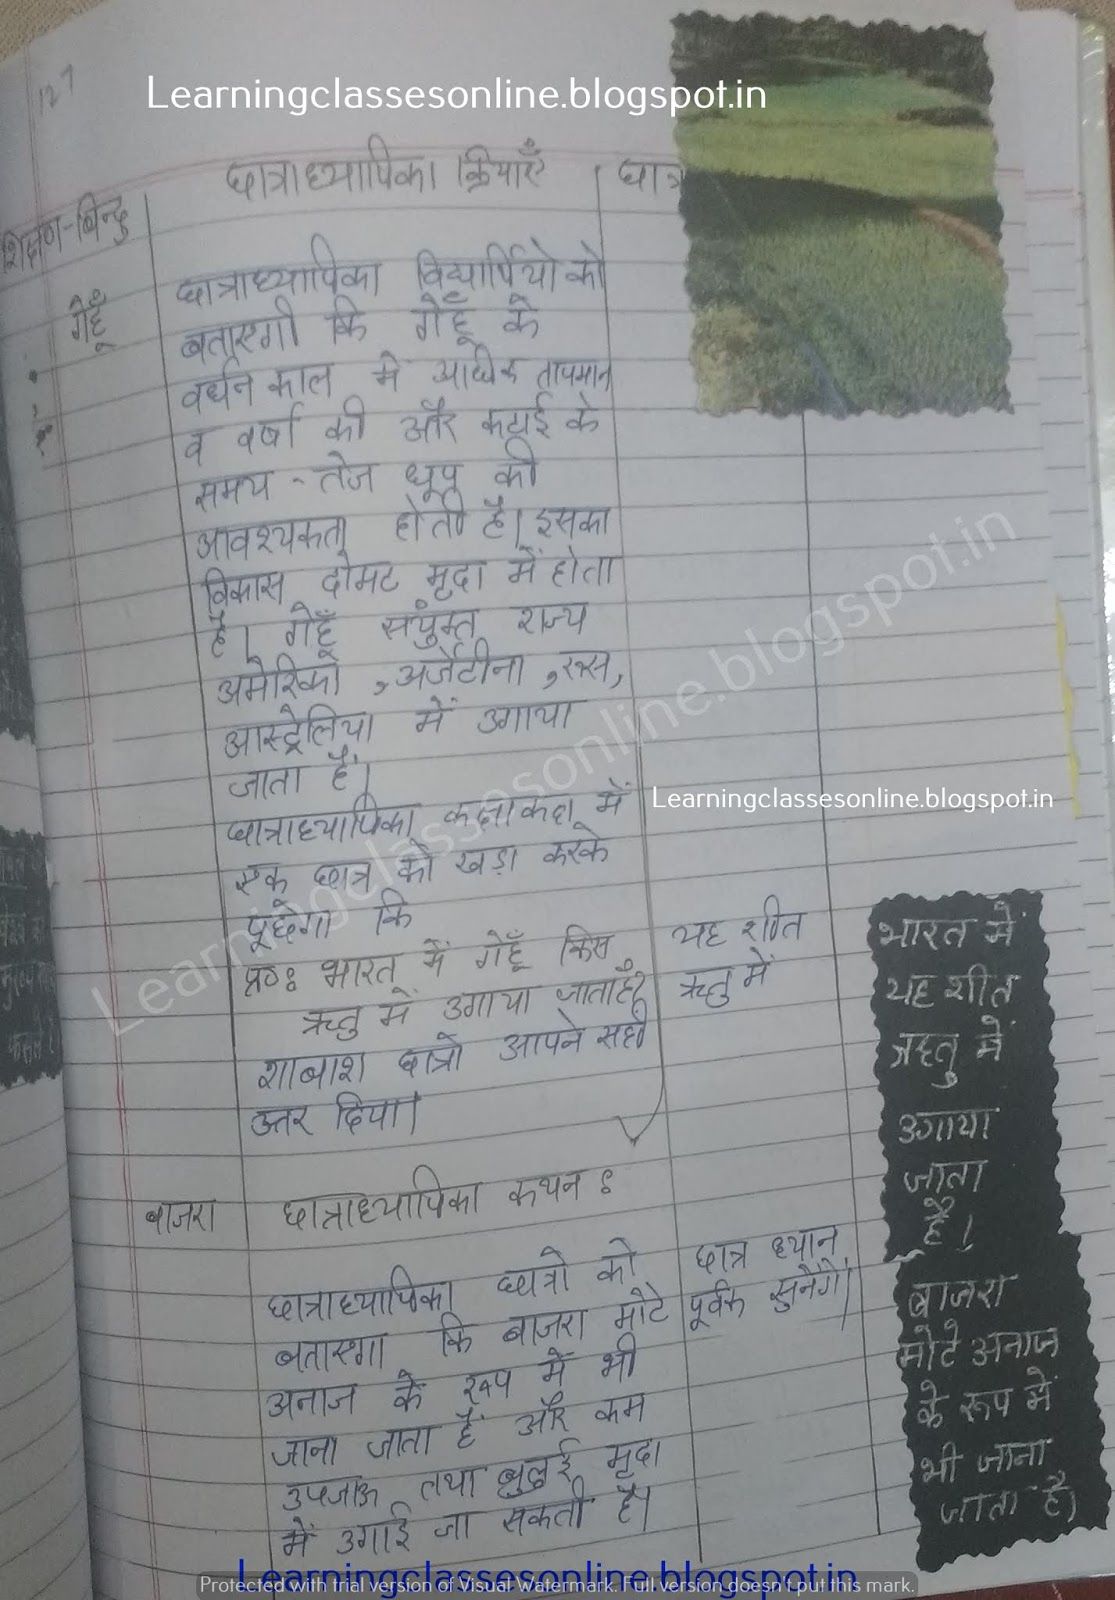 127
Learningclassesonline.blogspot.in
शिक्षण-बिन्दु
छात्राध्यापिका क्रियाएँ
छात्र
गेहूँ
छात्राध्यापिका विद्यार्थियो को
बताएगी कि गेहूँ के
वर्धन काल में अधिक तापमान
व वर्षा की और कटाई के
समय - तेज धूप की
आवश्यकता होती है। इसका
विकास दोमट मृदा में होता
है। गेहूँ संयुक्त राज्य
अमेरिका, अर्जेंटीना, रूस,
आस्ट्रेलिया में उगाया
जाता है।
Learningclassesonline.blogspot.in
छात्राध्यापिका कक्षाकक्ष में
एक छात्र को खड़ा करके
पूछेगा कि
प्र०: भारत में गेहूँ किस
ऋतु में उगाया जाता है?
यह शीत
ऋतु में
शाबाश छात्रो आपने सही
उत्तर दिया।
भारत में
यह शीत
ऋतु में
उगाया
जाता
है।
बाजरा
छात्राध्यापिका कथन :
छात्राध्यापिका छात्रो को
बताएगा कि बाजरा मोटे
अनाज के रूप में भी
जाना जाता है और कम
उपजाऊ तथा बुलई मृदा
में उगाई जा सकती है।
छात्र ध्यान
पूर्वक सुनेंगे।
बाजरा
मोटे अनाज
के रूप में
भी जाना
जाता है।
Learningclassesonline.blogspot.in
Learningclassesonline.blogspot.in
Protected with trial version of Visual Watermark. Full version doesn't put this mark.